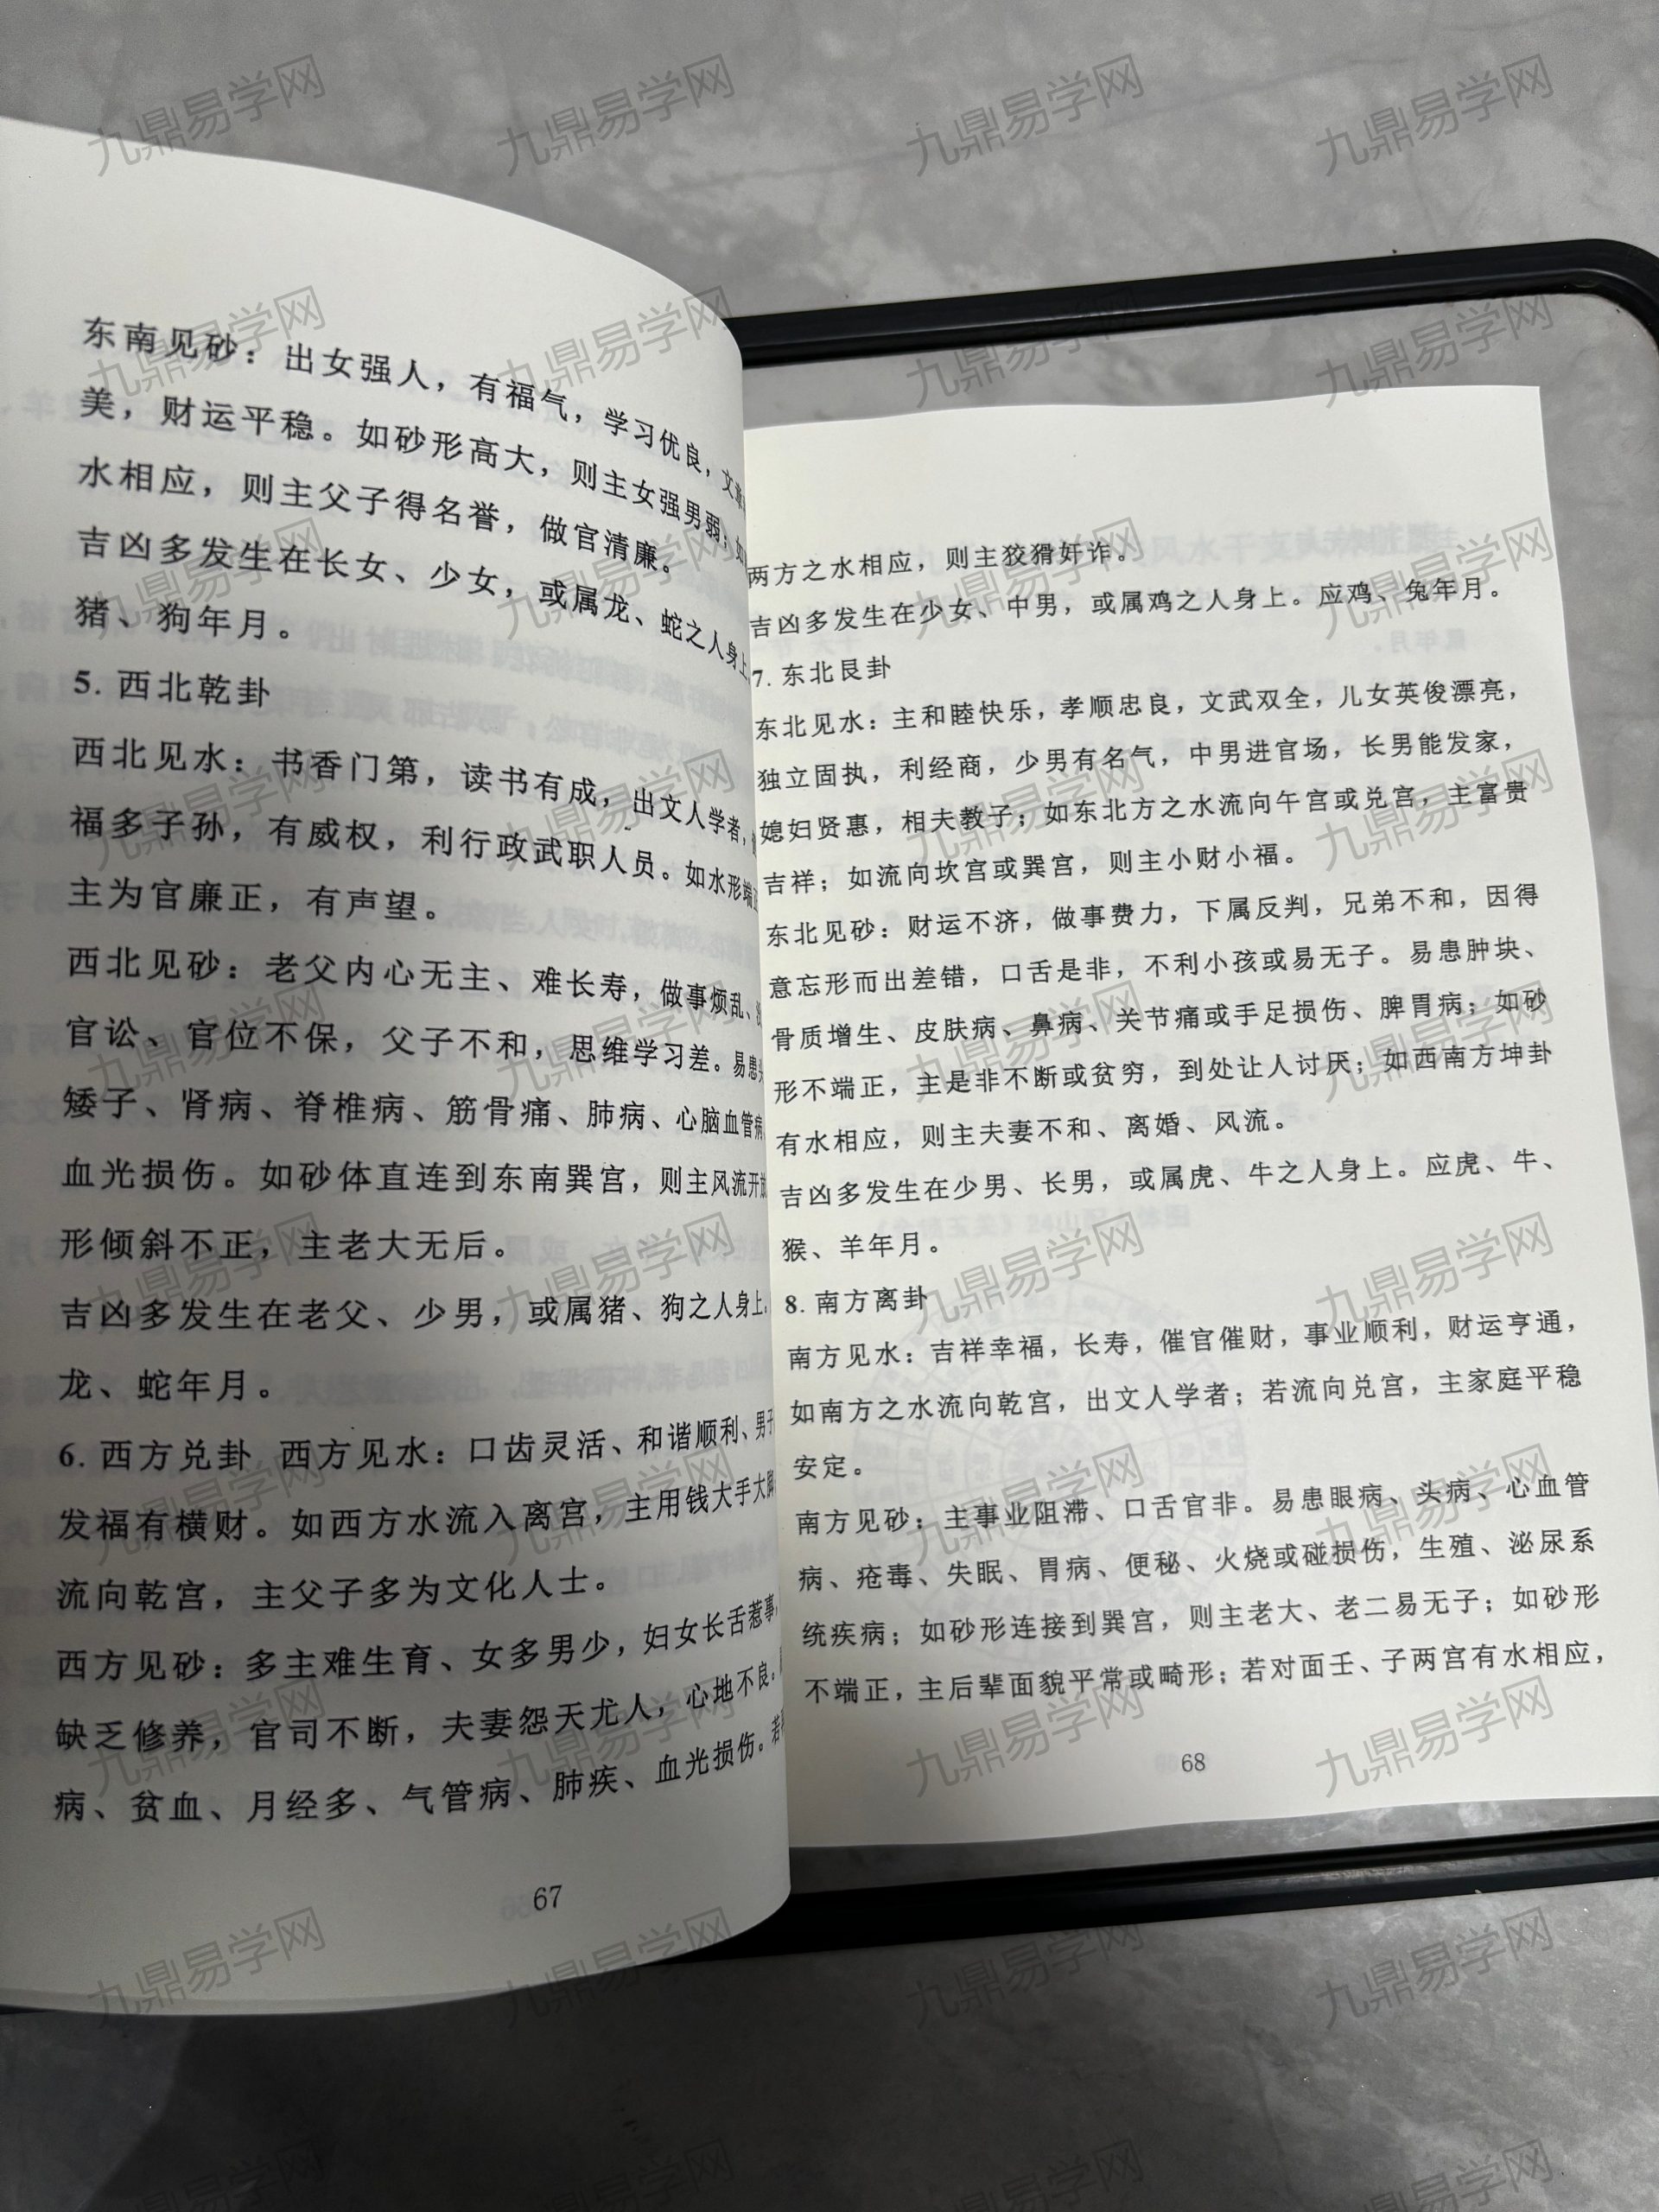 东南见砂：出女强人，有福气，学习优良，文章
美，财运平稳。如砂形高大，则主女强男弱；如
水相应，则主父子得名誉，做官清廉。
吉凶多发生在长女、少女，或属龙、蛇之人身上
猪、狗年月。
5. 西北乾卦
西北见水：书香门第，读书有成，出文人学者，
福多子孙，有威权，利行政武职人员。如水形端
主为官廉正，有声望。
西北见砂：老父内心无主、难长寿，做事烦乱、
官讼、官位不保，父子不和，思维学习差。易患
矮子、肾病、脊椎病、筋骨痛、肺病、心脑血管病
血光损伤。如砂体直连到东南巽宫，则主风流开放
形倾斜不正，主老大无后。
吉凶多发生在老父、少男，或属猪、狗之人身上。
龙、蛇年月。
6. 西方兑卦 西方见水：口齿灵活、和谐顺利、男子
发福有横财。如西方水流入离宫，主用钱大手大脚
流向乾宫，主父子多为文化人士。
西方见砂：多主难生育、女多男少，妇女长舌惹事，
缺乏修养，官司不断，夫妻怨天尤人，心地不良。
病、贫血、月经多、气管病、肺疾、血光损伤。若
67
两方之水相应，则主狡猾奸诈。
吉凶多发生在少女、中男，或属鸡之人身上。应鸡、兔年月。
7. 东北艮卦
东北见水：主和睦快乐，孝顺忠良，文武双全，儿女英俊漂亮，
独立固执，利经商，少男有名气，中男进官场，长男能发家，
媳妇贤惠，相夫教子；如东北方之水流向午宫或兑宫，主富贵
吉祥；如流向坎宫或巽宫，则主小财小福。
东北见砂：财运不济，做事费力，下属反判，兄弟不和，因得
意忘形而出差错，口舌是非，不利小孩或易无子。易患肿块、
骨质增生、皮肤病、鼻病、关节痛或手足损伤、脾胃病；如砂
形不端正，主是非不断或贫穷，到处让人讨厌；如西南方坤卦
有水相应，则主夫妻不和、离婚、风流。
吉凶多发生在少男、长男，或属虎、牛之人身上。应虎、牛、
猴、羊年月。
8. 南方离卦
南方见水：吉祥幸福，长寿，催官催财，事业顺利，财运亨通，
如南方之水流向乾宫，出文人学者；若流向兑宫，主家庭平稳
安定。
南方见砂：主事业阻滞、口舌官非。易患眼病、头病、心血管
病、疮毒、失眠、胃病、便秘、火烧或碰损伤，生殖、泌尿系
统疾病；如砂形连接到巽宫，则主老大、老二易无子；如砂形
不端正，主后辈面貌平常或畸形；若对面壬、子两宫有水相应，
68
九鼎易学网